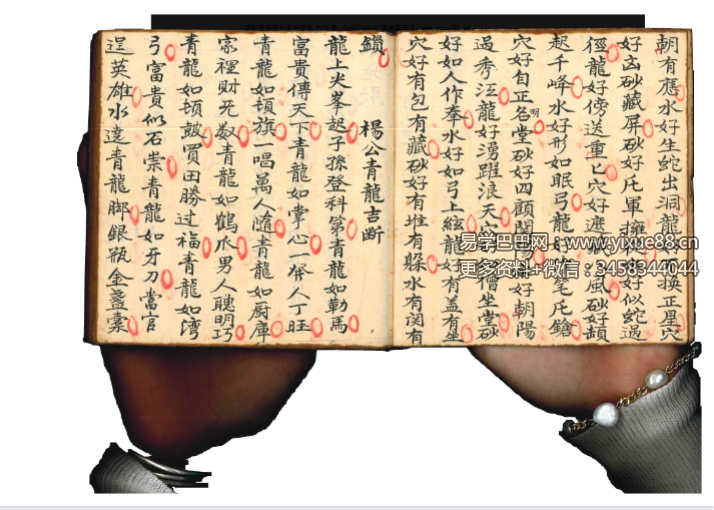 朝有鴈水好生蛇出洞龍
換正星穴
好凸砂藏屏砂好尾軍擁
好似蛇過
徑龍好傍送重已穴好遮藏風砂好頡
起千峰水好形如眠弓龍
筆尾鎗
穴好自正名堂砂好四顧
好朝陽
過秀江龍好湧躍浪天
僧坐堂砂
好如人作奉水好如弓上絃龍好有蓋有坐
穴好有包有藏砂好有堆有躲水有関有
鎖 楊公青龍吉斷
龍上尖峯起子孫登科第青龍如勒馬
富貴傳天下青龍如掌心一發人丁旺
青龍如頓旗一唱萬人隨青龍如厨庫
家裡財无数青龍如鶴爪男人聰明巧
青龍如頓鼓買田勝过福青龍如湾
弓富貴似石崇青龍如牙刀當官
逞英雄水遶青龍脚銀瓶金盞
易学巴巴网：www.yixue88.cn
更多资料+微信：3458344044